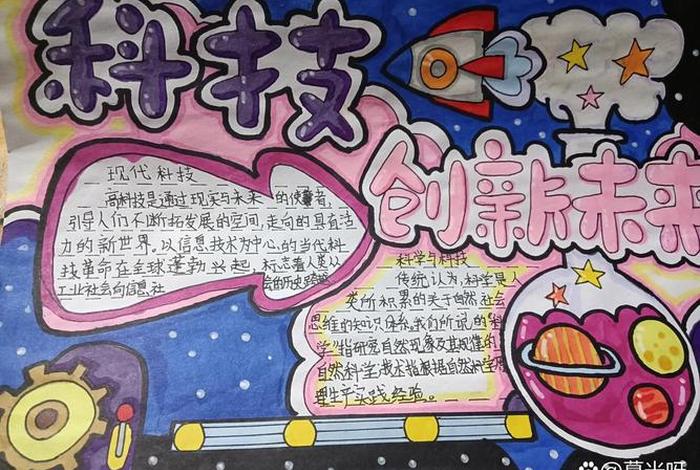 科技
创新未来
现代科技
高科技是通过现实与未来的使者,
引导人们不断拓发展的空间,走向的具有活
力的新世界。以信息技术为中心,的当代科
技革命在全球蓬勃兴起,标志着人类从
工业社会向信息社会的历史跨越
科学与科技
传统认为,科学是人
类所积累的关于自然,社会
思维的知识体系,我们所说的"科
学"指研究自然现象及其规律的
自然科学;技术指根据自然科学原
理生产实践经验。